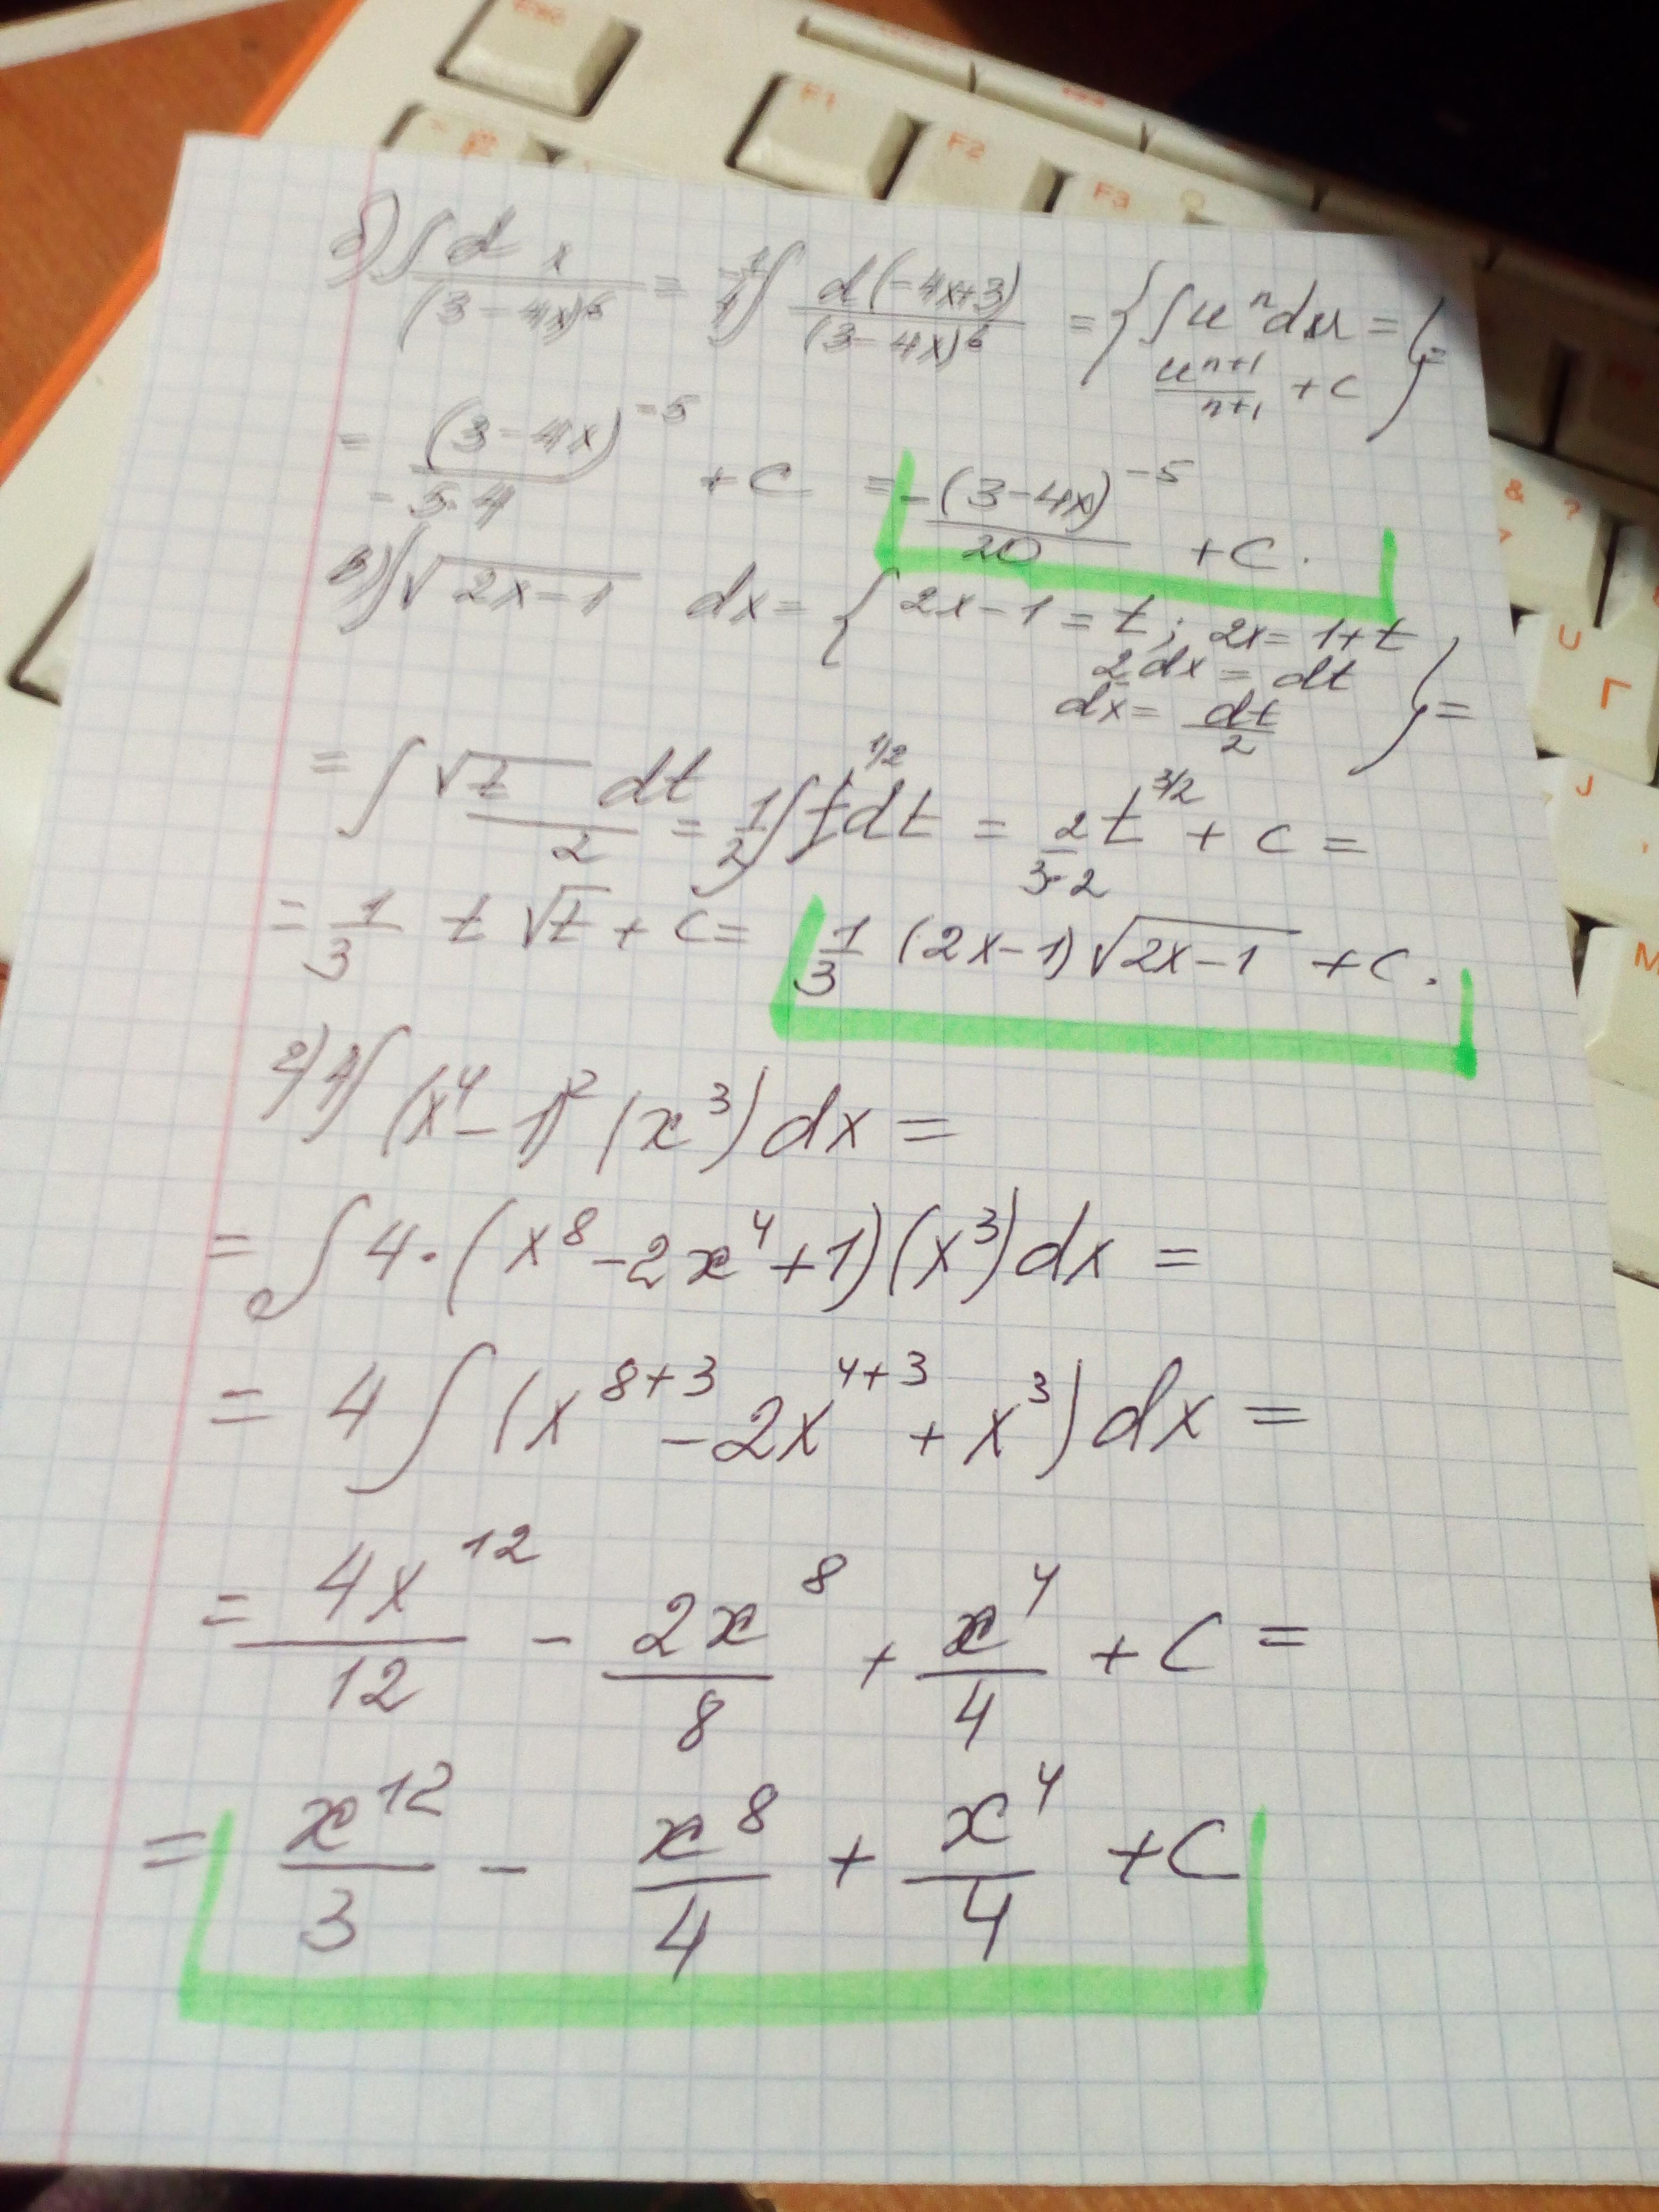 Esc
F1
F2
F3
& ?
7
U
Г
J
M
б) ∫ dx/(3-4x)^6 = -1/4 ∫ d(-4x+3)/(3-4x)^6 = { ∫ u^n du = u^(n+1)/(n+1) + C } =
= (3-4x)^-5/(-5·4) + C = -(3-4x)^-5/20 + C.
в) ∫ √(2x-1) dx = { 2x-1 = t; 2x = 1+t
2dx = dt
dx = dt/2 } =
= ∫ √t dt/2 = 1/2 ∫ t^(1/2) dt = 2/(3·2) t^(3/2) + C =
= 1/3 t √t + C = 1/3 (2x-1) √(2x-1) + C.
г) 4∫ (x^4-1)^2 (x^3) dx =
= ∫ 4·(x^8 - 2x^4 + 1)(x^3) dx =
= 4 ∫ (x^(8+3) - 2x^(4+3) + x^3) dx =
= 4x^12/12 - 2x^8/8 + x^4/4 + C =
= x^12/3 - x^8/4 + x^4/4 + C